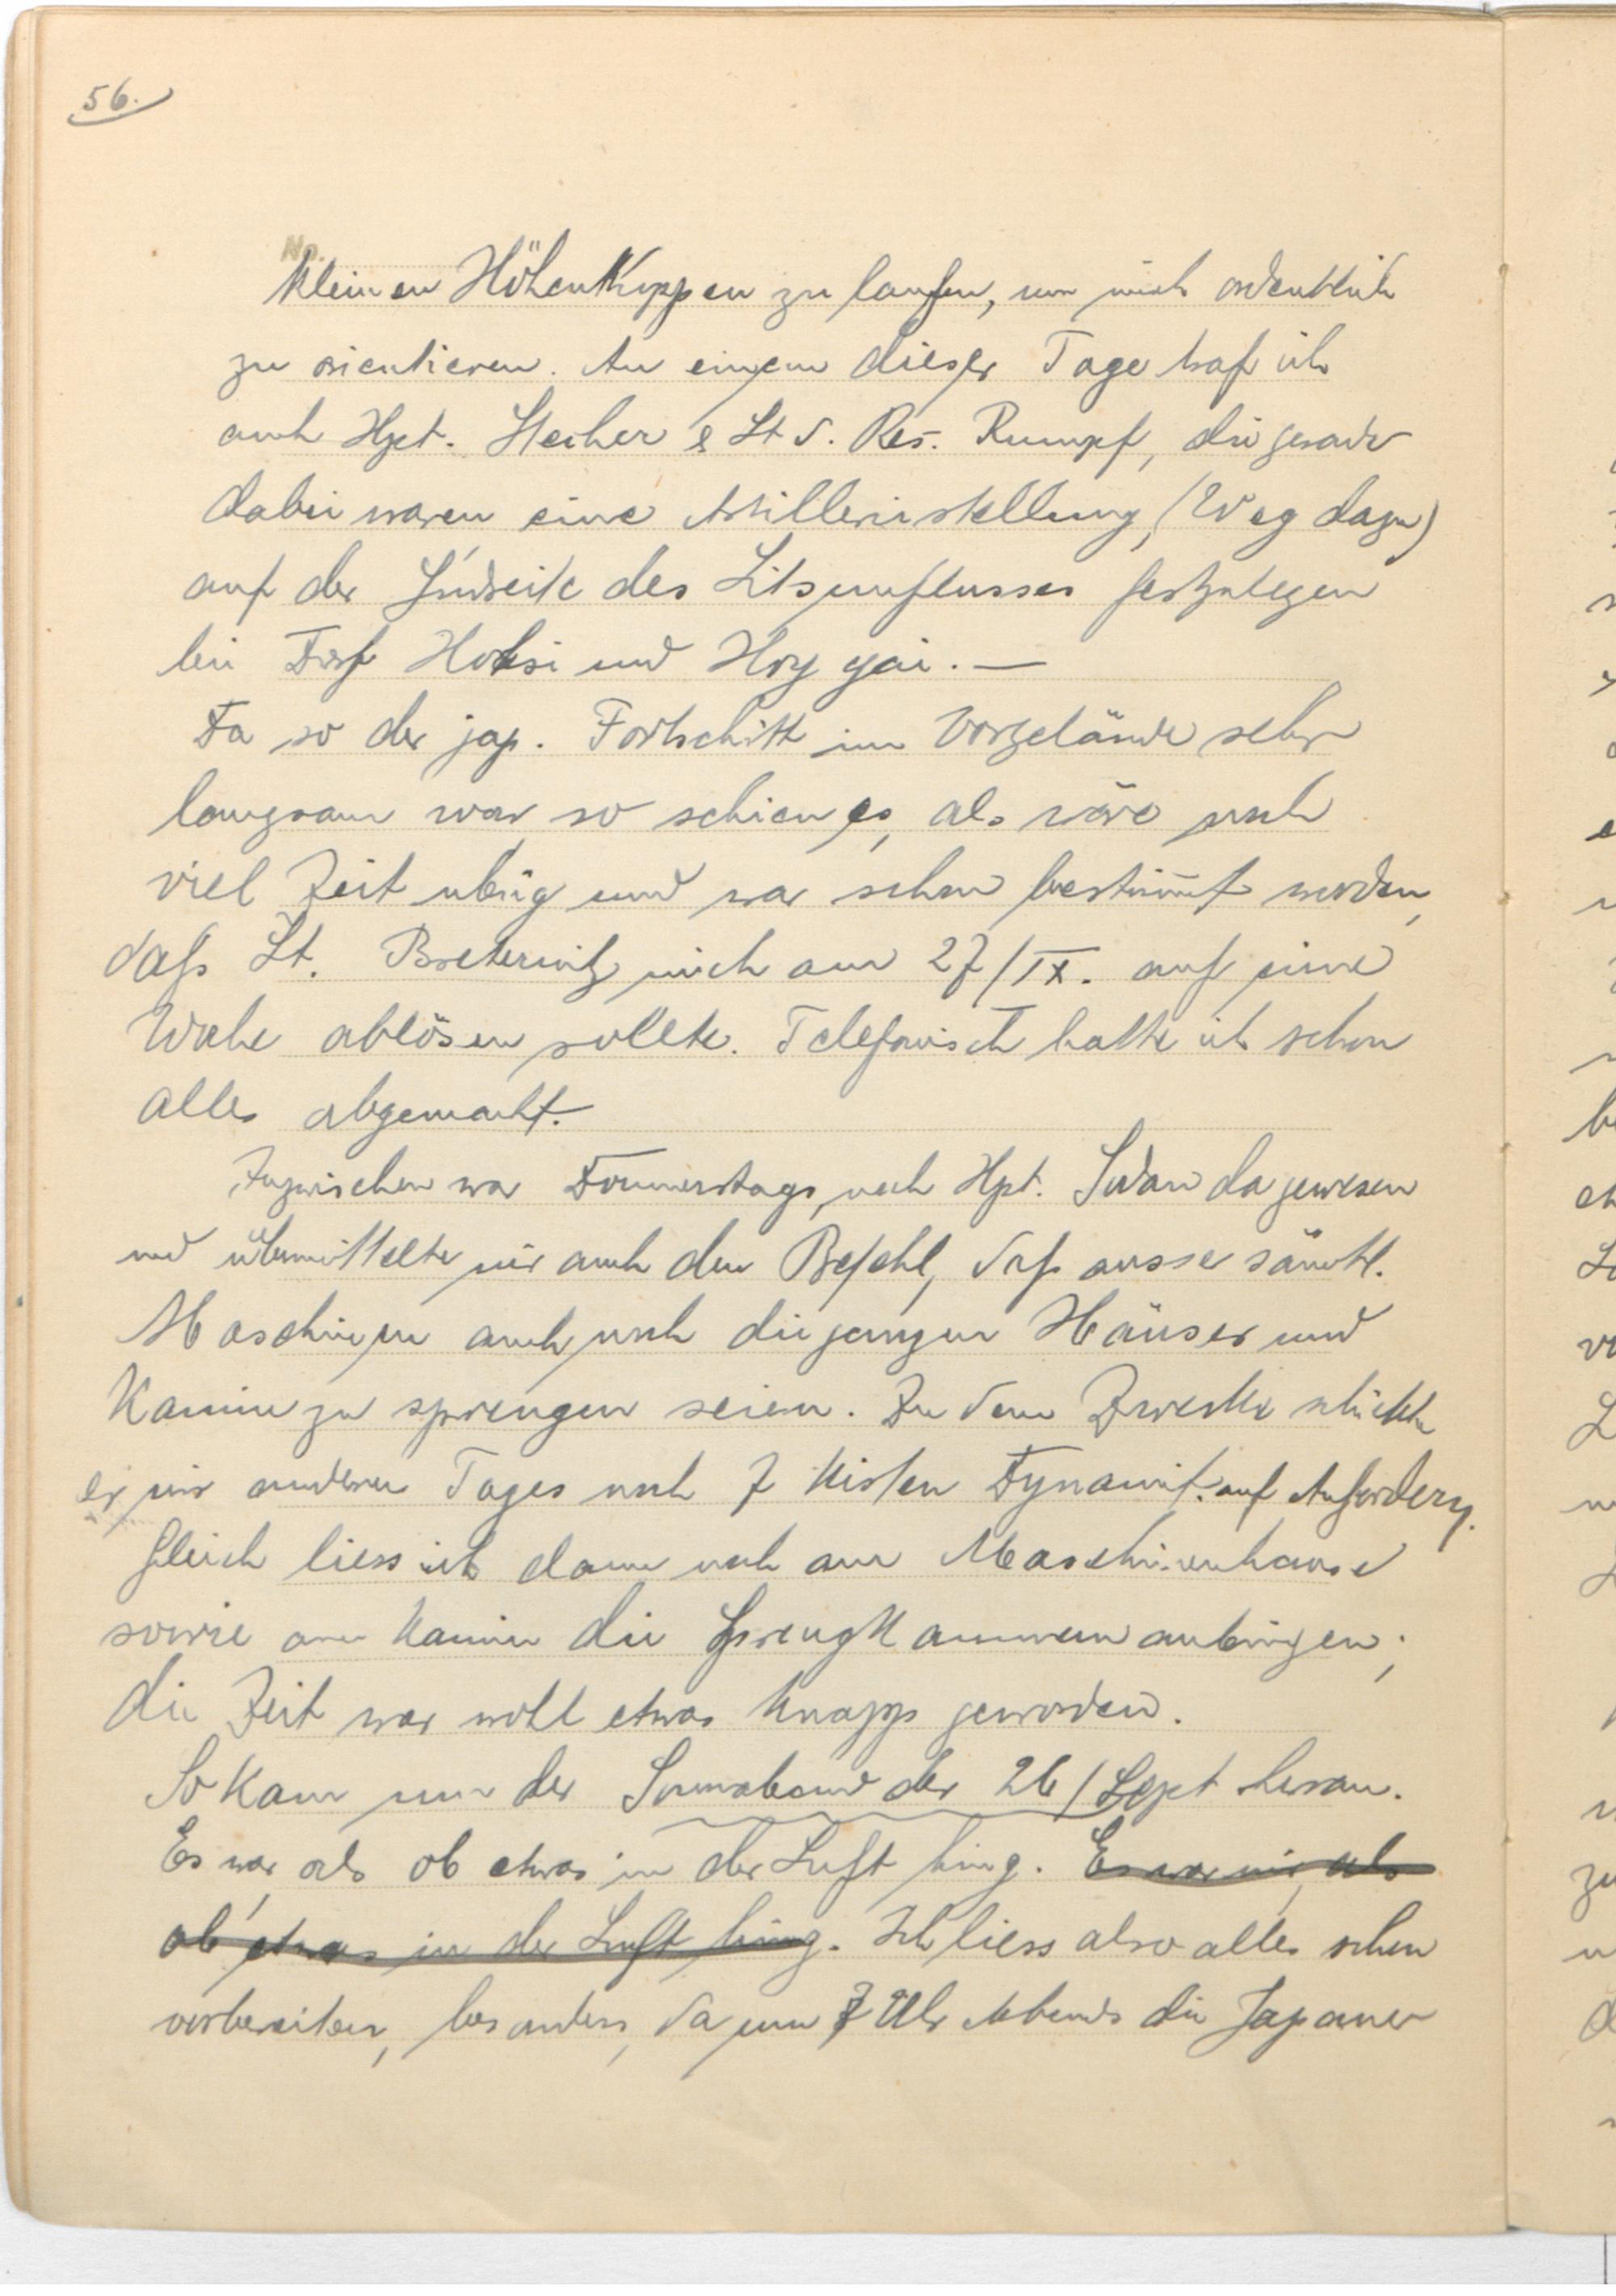 56.
kleinen Höhenkuppen zu laufen, um mich ordentlich
zu orientieren. An einem dieser Tage traf ich
auch Hpt. Stecher & Lt d. Res. Rumpf, die gerade
dabei waren eine Artilleriestellung, (Weg dazu)
auf der Südseite des Litsunflusses festzulegen
bei Dorf Hoksi und
Da so der jap. Fortschritt im Vorgelände sehr
langsam war so schien es, als wäre noch
viel Zeit übrig und war schon bestimmt worden,
dass Lt. mich am 27/IX. auf eine
Woche ablösen sollte. Telefonisch hatte ich schon
alles abgemacht.
Inzwischen war Donnerstags, noch Hpt. Sodan da gewesen
und übermittelte mir auch den Befehl, dass ausser sämtl.
Maschinen auch noch die ganzen Häuser und
Kamine zu sprengen seien. Zu dem Zwecke schickte
er mir anderen Tages noch 7 Kisten Dynamit. auf Anforderg.
Gleich liess ich dann noch am Maschinenhause
sowie am Kamin die Sprengkammern anbringen;
die Zeit war wohl etwas knapp geworden.
So kam nun der Sonnabend der 26/Sept heran.
Es war als ob etwas in der Luft hing. Es war mir, als
ob etwas in der Luft hing. Ich liess also alles schon
vorbereiten, besonders, da um 7 Uhr Abends die Japaner